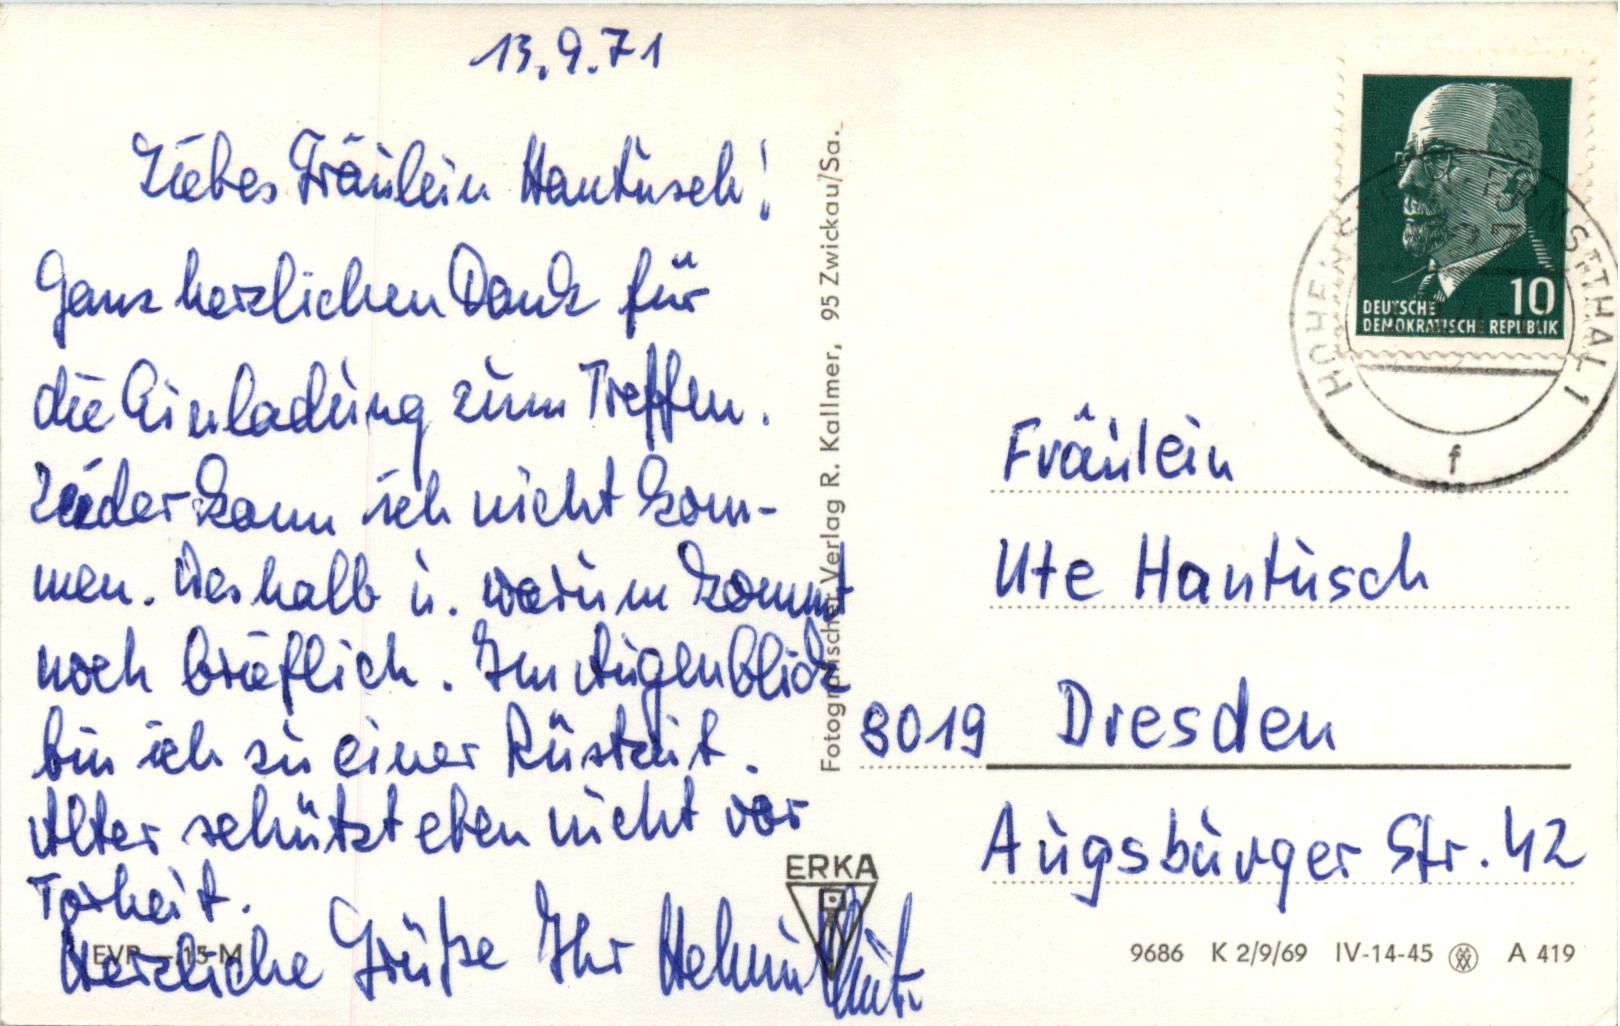 13.9.71
Liebes Fräulein Hantusch!
Ganz herzlichen Dank für
die Einladung zum Treffen.
Leider kann ich nicht kom-
men. Weshalb u. warum kommt
noch brieflich. Im Augenblick
bin ich zu einer Rüstzeit.
Alter schützt eben nicht vor
Torheit.
Herzliche Grüße Ihr Helmut
EVP —,15 M
Fotografischer Verlag R. Kallmer, 95 Zwickau/Sa.
ERKA
DEUTSCHE 10
DEMOKRATISCHE REPUBLIK
HOHENSTEIN-ERNSTTHAL 1
f
Fräulein
Ute Hantusch
8019 Dresden
Augsburger Str. 42
9686 K 2/9/69 IV-14-45 A 419